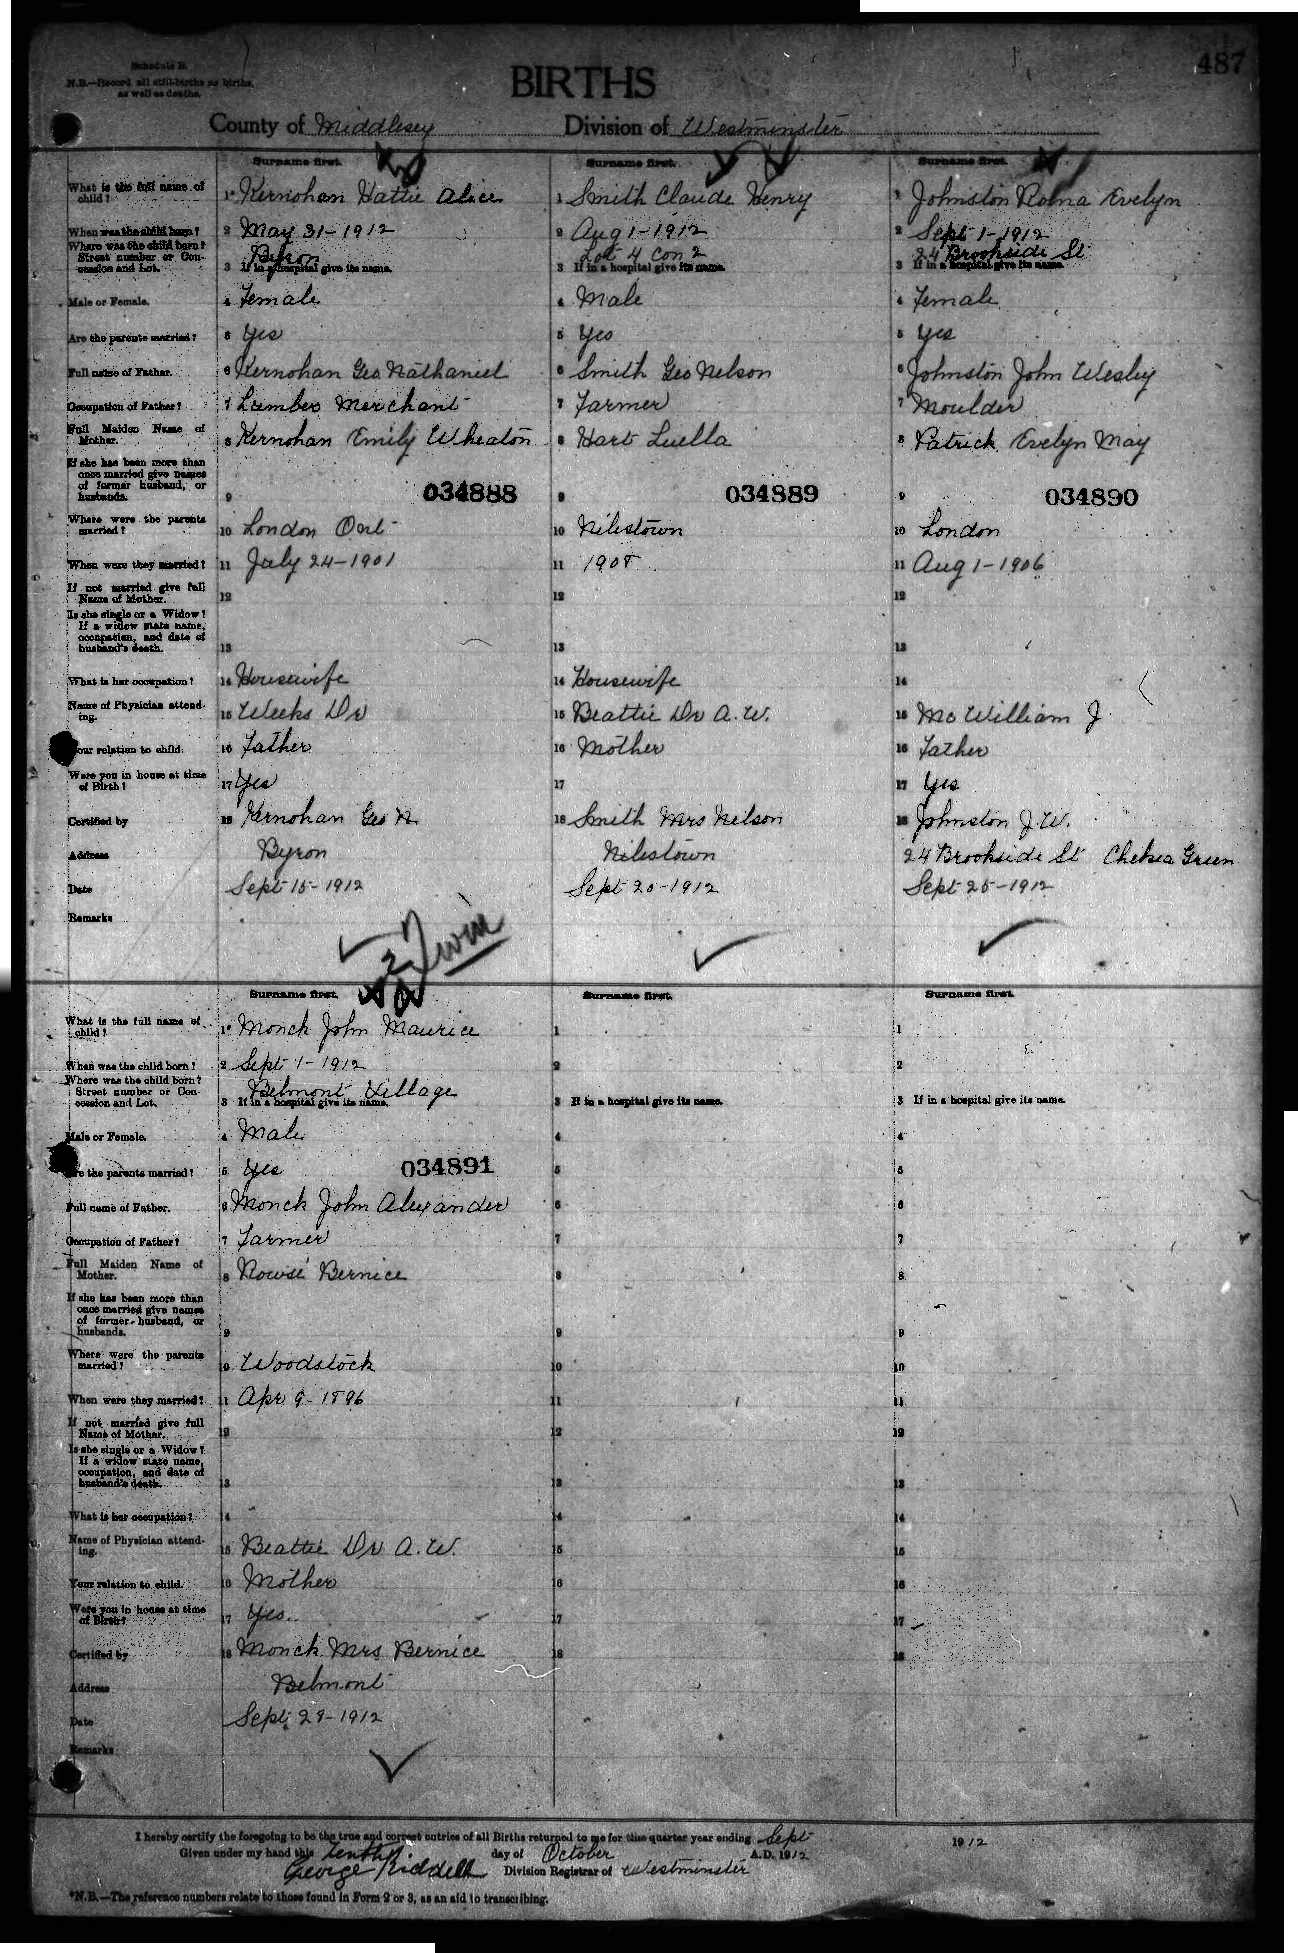 Schedule B.
487
N.B.—Record all still-births as births,
as well as deaths.
BIRTHS
County of Middlesex Division of Westminster
Surname first. Surname first. Surname first.
What is the full name of child? 1* Kernohan Hattie Alice 1 Smith Claude Henry 1 Johnston Rolna Evelyn
When was the child born? 2 May 31-1912 2 Aug 1-1912 2 Sept 1-1912
Where was the child born? Street number or Concession and Lot. Byron Lot 4 Con 2 24 Brookside St
3 If in a hospital give its name. 3 If in a hospital give its name. 3 If in a hospital give its name.
Male or Female. 4 Female 4 Male 4 Female
Are the parents married? 5 Yes 5 Yes 5 Yes
Full name of Father. 6 Kernohan Geo Nathaniel 6 Smith Geo Nelson 6 Johnston John Wesley
Occupation of Father? 7 Lumber Merchant 7 Farmer 7 Moulder
Full Maiden Name of Mother. 8 Kernohan Emily Wheaton 8 Hart Luella 8 Patrick Evelyn May
If she has been more than once married give names of former husband, or husbands. 9 034888 9 034889 9 034890
Where were the parents married? 10 London Ont 10 Nilestown 10 London
When were they married? 11 July 24-1901 11 1908 11 Aug 1-1906
If not married give full Name of Mother. 12 12 12
Is she single or a Widow? If a widow state name, occupation, and date of husband's death. 13 13 13
What is her occupation? 14 Housewife 14 Housewife 14
Name of Physician attending. 15 Weeks Dr 15 Beattie Dr A. W. 15 McWilliam J
Your relation to child. 16 Father 16 Mother 16 Father
Were you in house at time of Birth? 17 Yes 17 17 Yes
Certified by 18 Kernohan Geo N. 18 Smith Mrs Nelson 18 Johnston J. W.
Address Byron Nilestown 24 Brookside St Chelsea Green
Date Sept 15-1912 Sept 20-1912 Sept 25-1912
Remarks
Twin
Surname first. Surname first. Surname first.
What is the full name of child? 1* Monck John Maurice 1 1
When was the child born? 2 Sept 1-1912 2 2
Where was the child born? Street number or Concession and Lot. Belmont Village
3 If in a hospital give its name. 3 If in a hospital give its name. 3 If in a hospital give its name.
Male or Female. 4 Male 4 4
Are the parents married? 5 Yes 034891 5 5
Full name of Father. 6 Monck John Alexander 6 6
Occupation of Father? 7 Farmer 7 7
Full Maiden Name of Mother. 8 Rowse Bernice 8 8
If she has been more than once married give names of former husband, or husbands. 9 9 9
Where were the parents married? 10 Woodstock 10 10
When were they married? 11 Apr 9-1896 11 11
If not married give full Name of Mother. 12 12 12
Is she single or a Widow? If a widow state name, occupation, and date of husband's death. 13 13 13
What is her occupation? 14 14 14
Name of Physician attending. 15 Beattie Dr A. W. 15 15
Your relation to child. 16 Mother 16 16
Were you in house at time of Birth? 17 Yes 17 17
Certified by 18 Monck Mrs Bernice 18 18
Address Belmont
Date Sept 28-1912
Remarks
I hereby certify the foregoing to be the true and correct entries of all Births returned to me for the quarter year ending Sept 1912
Given under my hand this tenth day of October A.D. 1912
George Riddell Division Registrar of Westminster
*N.B.—The reference numbers relate to those found in Form 2 or 3, as an aid to transcribing.